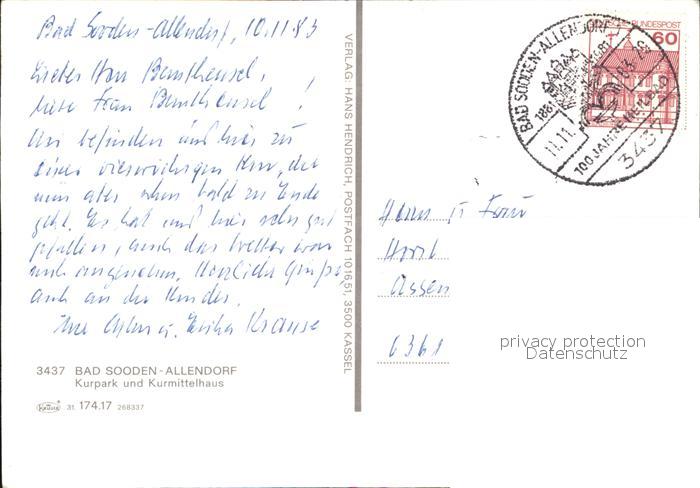 Bad Sooden-Allendorf, 10.11.83
Lieber Herr Benthensel,
liebe Frau Benthensel!
Wir befinden uns hier zu
einer vierwöchigen Kur, die
nun aber schon bald zu Ende
geht. Es hat uns hier sehr gut
gefallen, auch das Wetter war
noch angenehm. Herzliche Grüße
auch an die Kinder.
Ihre u. Erika Krause
3437 BAD SOODEN-ALLENDORF
Kurpark und Kurmittelhaus
Krüger 31 174.17 268337
VERLAG: HANS HENDRICH, POSTFACH 101651, 3500 KASSEL
DEUTSCHE BUNDESPOST
60
BAD SOODEN-ALLENDORF
1881 1981
11.11.83-19
100 JAHRE HEILBAD
3437
Herrn u Frau
Horst
Assen
6361
privacy protection
Datenschutz